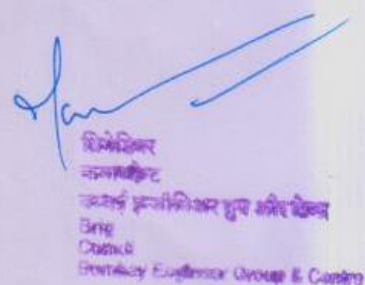 ब्रिगेडियर
कमांडेंट
बम्बई इन्जीनियर ग्रुप और केन्द्र
Brig
Comdt
Bombay Engineer Group & Centre